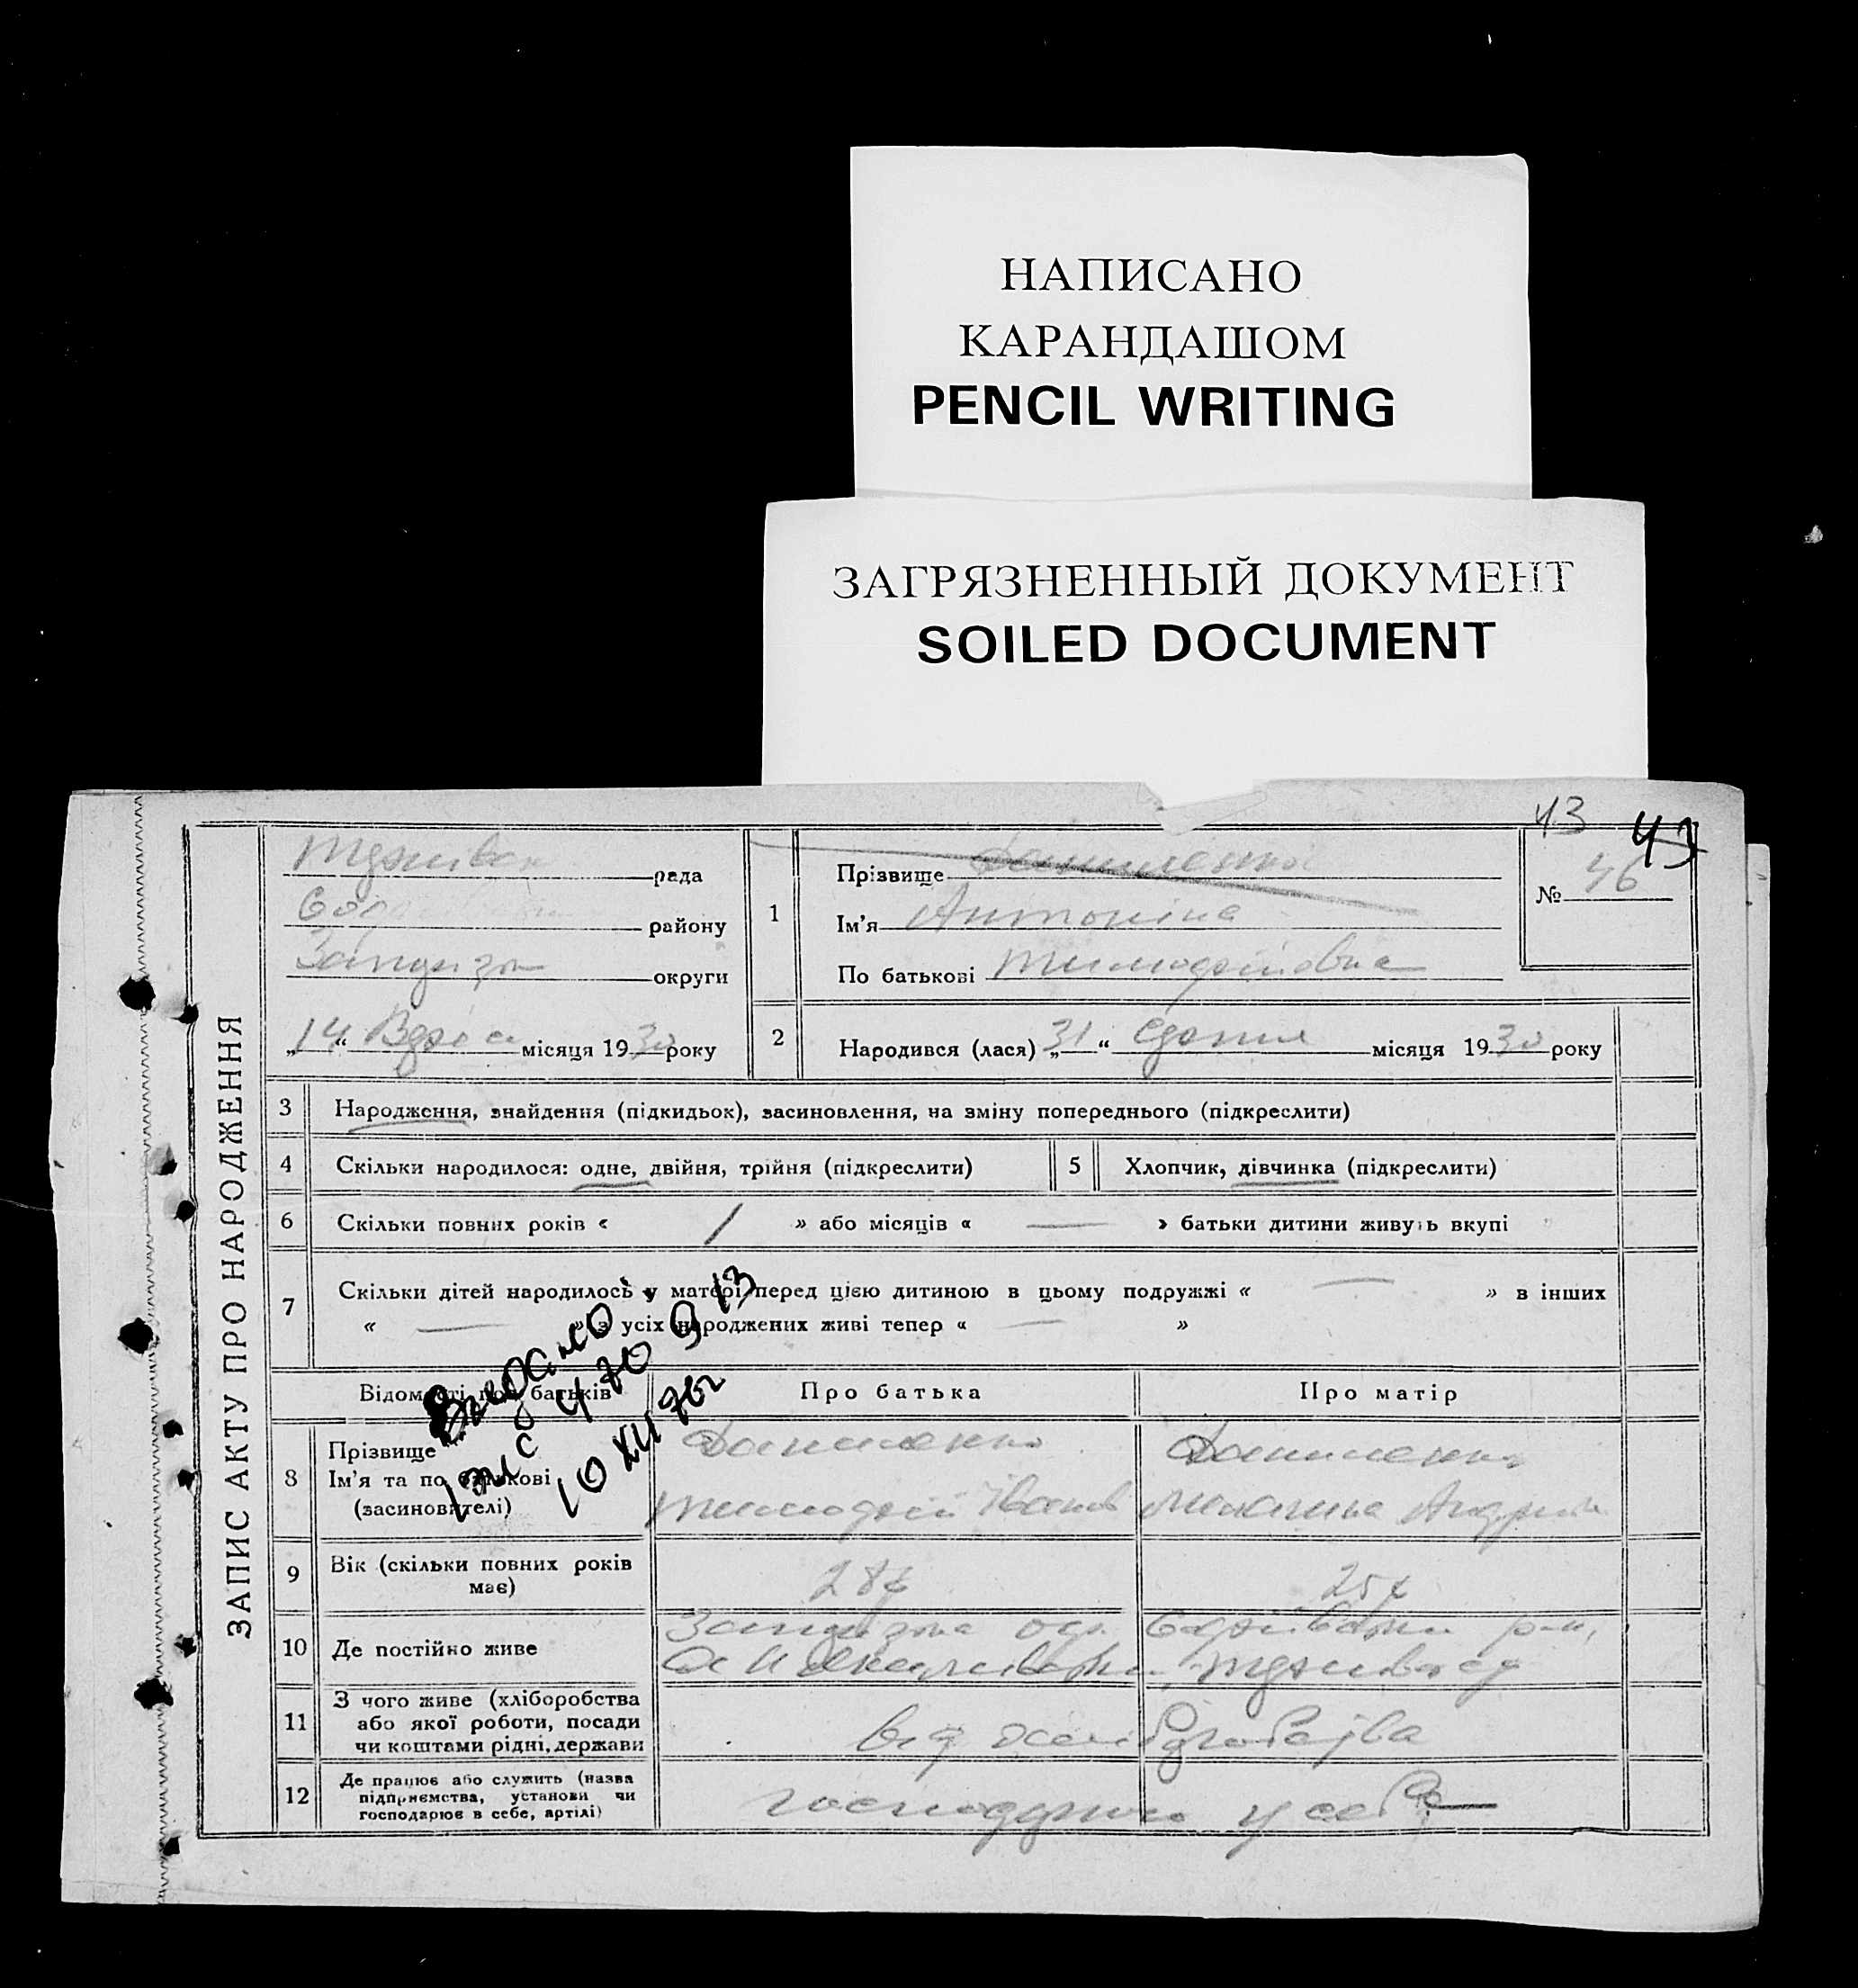 НАПИСАНО
КАРАНДАШОМ
PENCIL WRITING
ЗАГРЯЗНЕННЫЙ ДОКУМЕНТ
SOILED DOCUMENT
43 43
ЗАПИС АКТУ ПРО НАРОДЖЕННЯ
рада
району
округи
„14“ місяця 1930 року
1
Прізвище
Ім'я Антоніна
По батькові Тимофіївна
№ 46
2
Народився (лася) „31“ Серпня місяця 1930 року
3 Народження, знайдення (підкидьок), засиновлення, на зміну попереднього (підкреслити)
4 Скільки народилося: одне, двійня, трійня (підкреслити)
5 Хлопчик, дівчинка (підкреслити)
6 Скільки повних років « / » або місяців « — » батьки дитини живуть вкупі
7 Скільки дітей народилось у матері перед цією дитиною в цьому подружжі « — » в інших
« — » з усіх народжених живі тепер « — »
Відомості про батьків Про батька Про матір
8 Прізвище
Ім'я та по батькові
(засиновителі)
Даниленко
Тимофій Іванов
Даниленко
9 Вік (скільки повних років
має)
28
25
10 Де постійно живе
11 З чого живе (хліборобства
або якої роботи, посади
чи коштами рідні, держави
від хліборобства
12 Де працює або служить (назва
підприємства, установи чи
господарює в себе, артілі)
у себе
10 XII 76